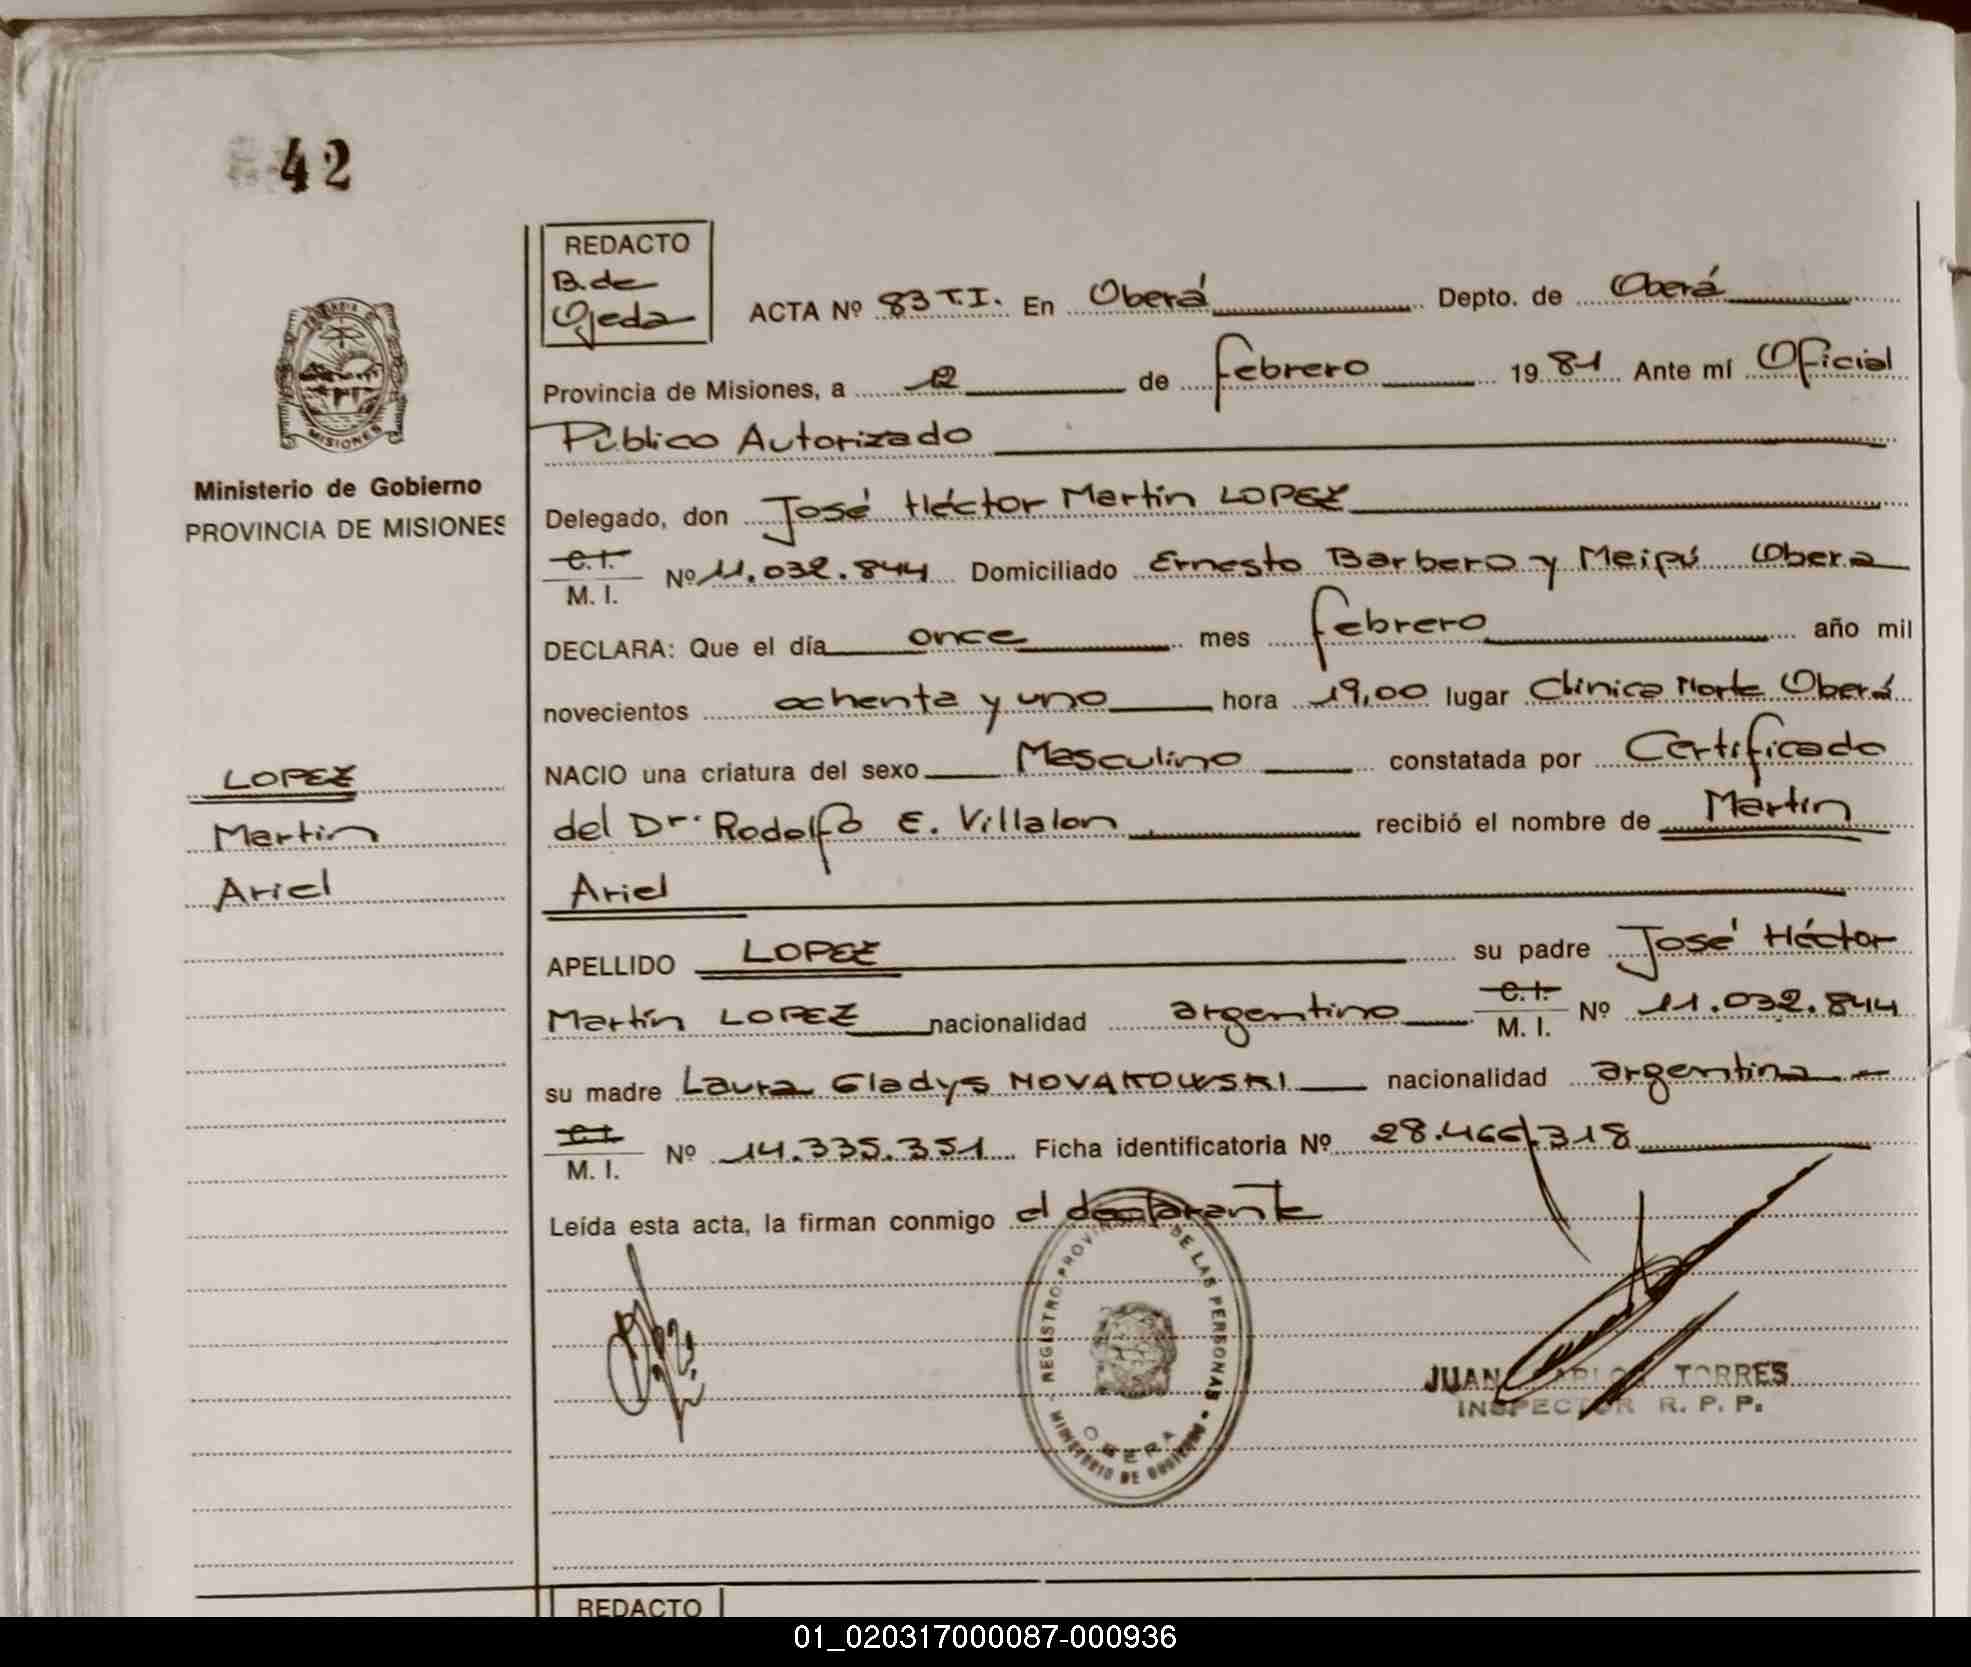 42
REDACTO
B. de
Ojeda
ACTA Nº 83 T.I. En Oberá Depto. de Oberá
Provincia de Misiones, a 12 de febrero 1981 Ante mí Oficial
Público Autorizado
MISIONES
Ministerio de Gobierno
PROVINCIA DE MISIONES
Delegado, don José Héctor Martín LOPEZ
C.I.
M. I. Nº 11.032.844 Domiciliado Ernesto Barbero y Meipú Obera
DECLARA: Que el día once mes febrero año mil
novecientos ochenta y uno hora 19,00 lugar Clinica Norte Oberá
NACIO una criatura del sexo Masculino constatada por Certificado
del Dr. Rodolfo E. Villalon recibió el nombre de Martin
Ariel
LOPEZ
Martin
Ariel
APELLIDO LOPEZ su padre José Héctor
Martín LOPEZ nacionalidad argentino C.I. M. I. Nº 11.032.844
su madre Laura Gladys NOVAKOWSKI nacionalidad argentina
C.I.
M. I. Nº 14.335.351 Ficha identificatoria Nº 28.466.318
Leída esta acta, la firman conmigo el declarante
REGISTRO PROVIN DE LAS PERSONAS
MINISTERIO DE GOBIERNO
OBERA
JUAN CARLOS TORRES
INSPECTOR R. P. P.
REDACTO
01_020317000087-000936